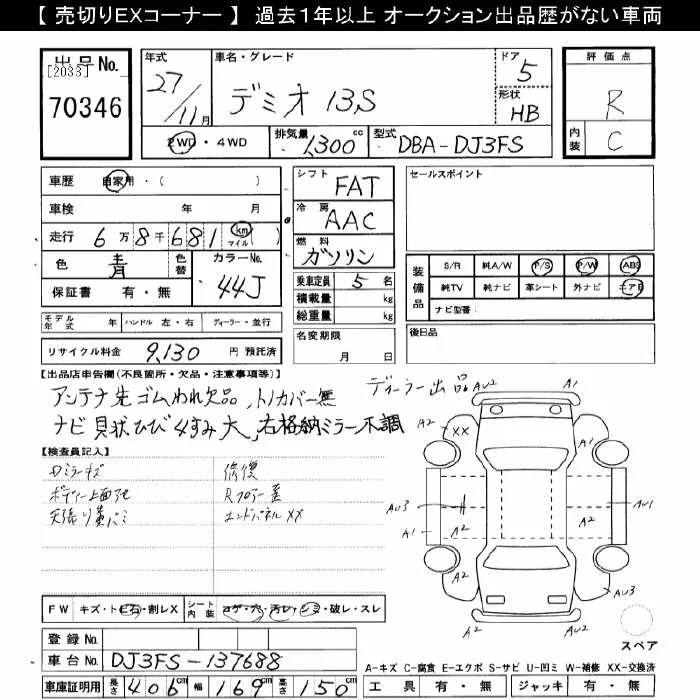 【 売切りEXコーナー 】 過去1年以上 オークション出品歴がない車両
出品 No.
[2033]
70346
年式
27/11月
車名・グレード
デミオ 13S
ドア
5
形状
HB
評価点
R
内装
C
2WD・4WD
排気量 1,300 cc
型式 DBA-DJ3FS
車歴 自家用・( )
車検 年 月
走行 6万8千681 km マイル ( )
色 青
色替
カラーNo. 44J
保証書 有・無
シフト FAT
冷房 AAC
燃料 ガソリン
乗車定員 5 名
積載量 kg
総重量 kg
セールスポイント
装備品
S/R 純A/W P/S P/W ABS
純TV 純ナビ 革シート 外ナビ エアB
ナビ型番:
モデル年式 年 ハンドル 左・右 ディーラー・並行
リサイクル料金 9,130 円 預託済
名変期限
月 日
後日品
【出品店申告欄(不良箇所・欠品・注意事項等)】
ディーラー出品
アンテナ先ゴムわれ欠品,トノカバー無
ナビ 具状ひび 4すみ大,右格納ミラー不調
【検査員記入】
ボディー上面
修復
Rフロアー
エンドパネルXX
AU2
A1
A2
XX
A1
AU3
A1
A2
A2
AU1
A2
A2
AU3
スペア
FW キズ・トビ石・割レX
シート内装 コゲ・穴・汚レ・シミ・破レ・スレ
登録 No.
車台 No. DJ3FS-137688
車庫証明用 長さ 406 cm 幅 169 cm 高さ 150 cm
A-キズ C-腐食 E-エクボ S-サビ U-凹ミ W-補修 XX-交換済
工具 有・無 ジャッキ 有・無